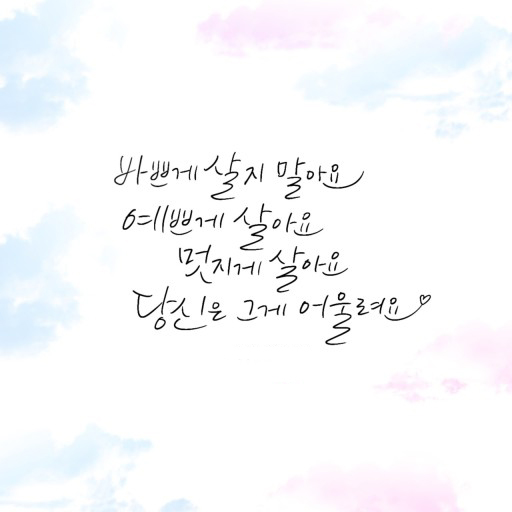 바쁘게 살지 말아요
예쁘게 살아요
멋지게 살아요
당신은 그게 어울려요♡